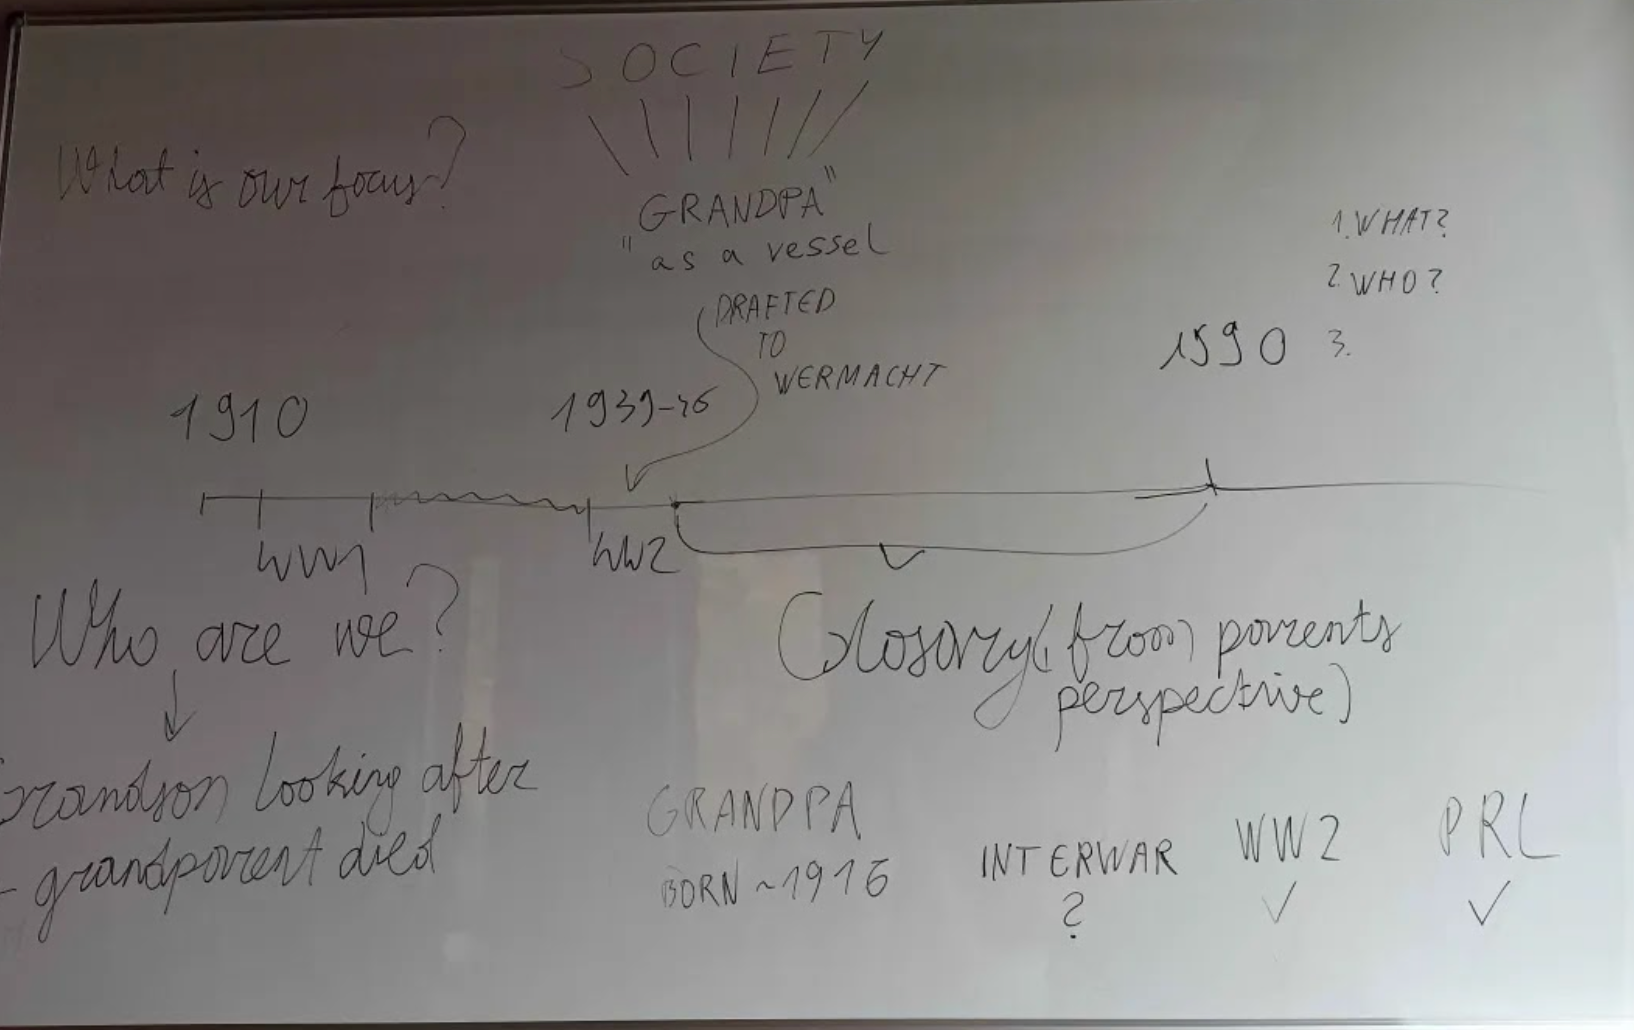 SOCIETY
What is our focus?
"GRANDPA"
"as a vessel
DRAFTED
TO
WERMACHT
1. WHAT?
2. WHO?
3.
1910
1939-45
1990
WW1
WW2
Who are we?
Grandson looking after
- grandparent died
Glosary (from parents
perspective)
GRANDPA
BORN ~1916
INTERWAR
?
WW2
PRL